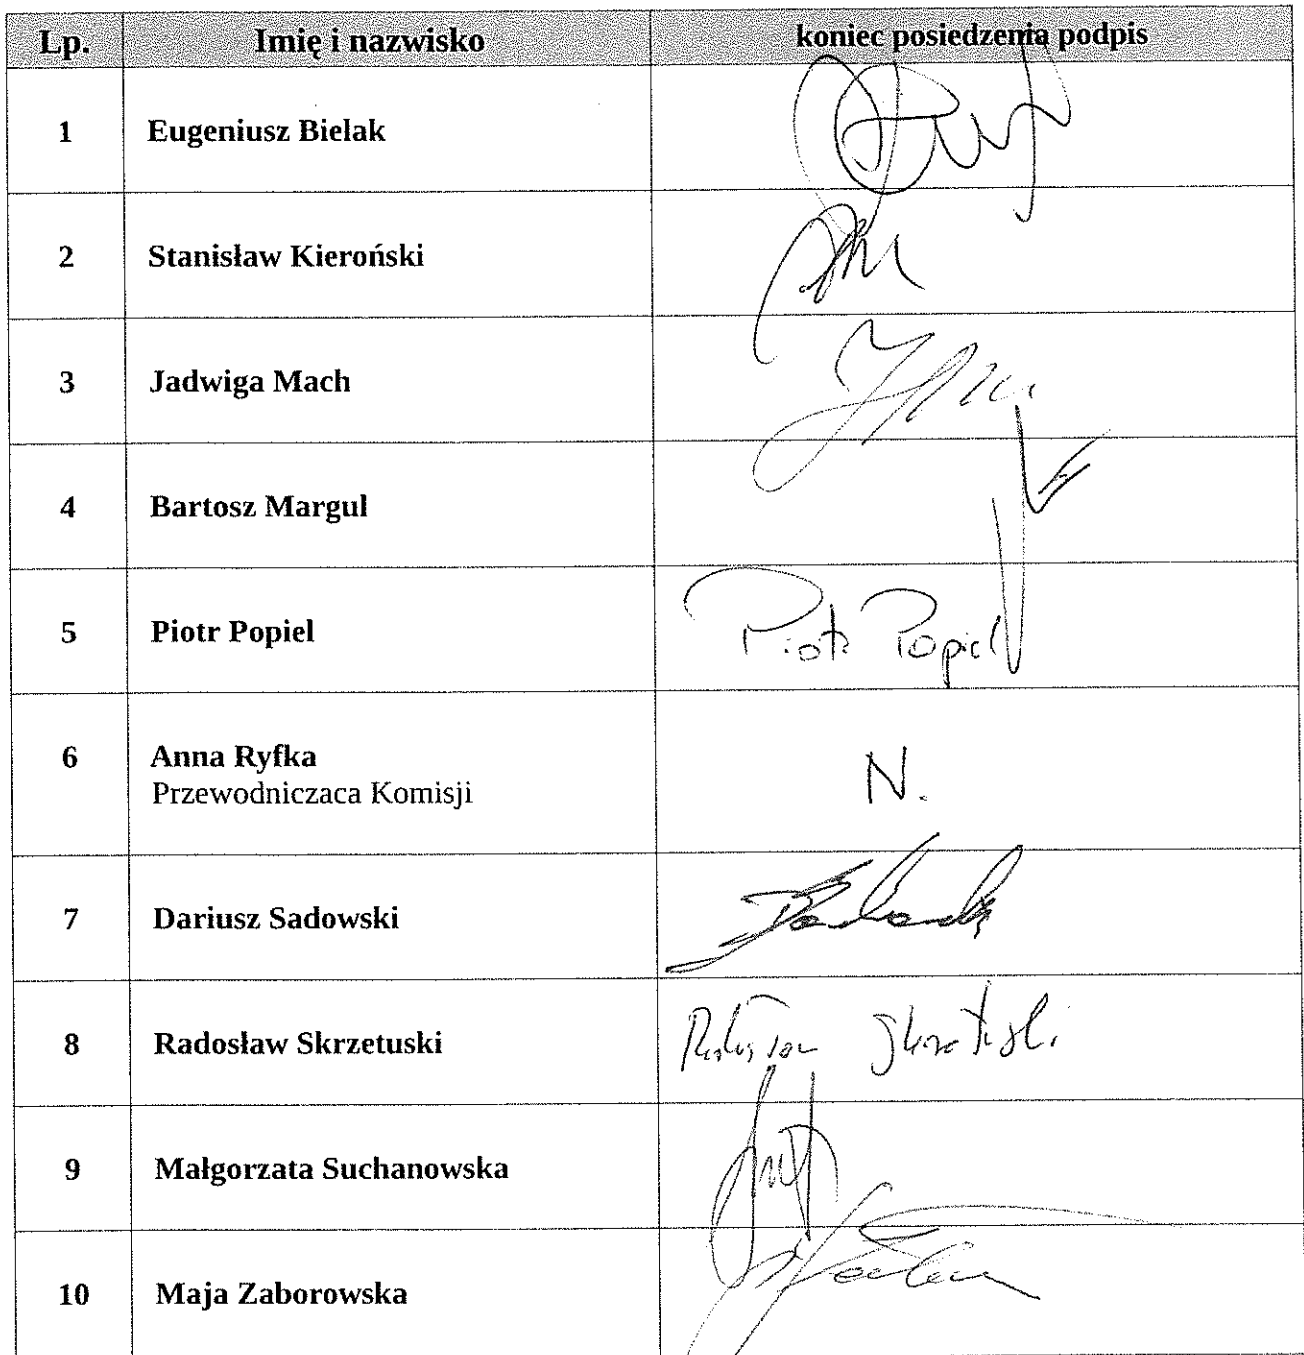 Lp. Imię i nazwisko koniec posiedzenia podpis
1 Eugeniusz Bielak
2 Stanisław Kieroński
3 Jadwiga Mach
4 Bartosz Margul
5 Piotr Popiel Piotr Popiel
6 Anna Ryfka N.
Przewodniczaca Komisji
7 Dariusz Sadowski
8 Radosław Skrzetuski
9 Małgorzata Suchanowska
10 Maja Zaborowska